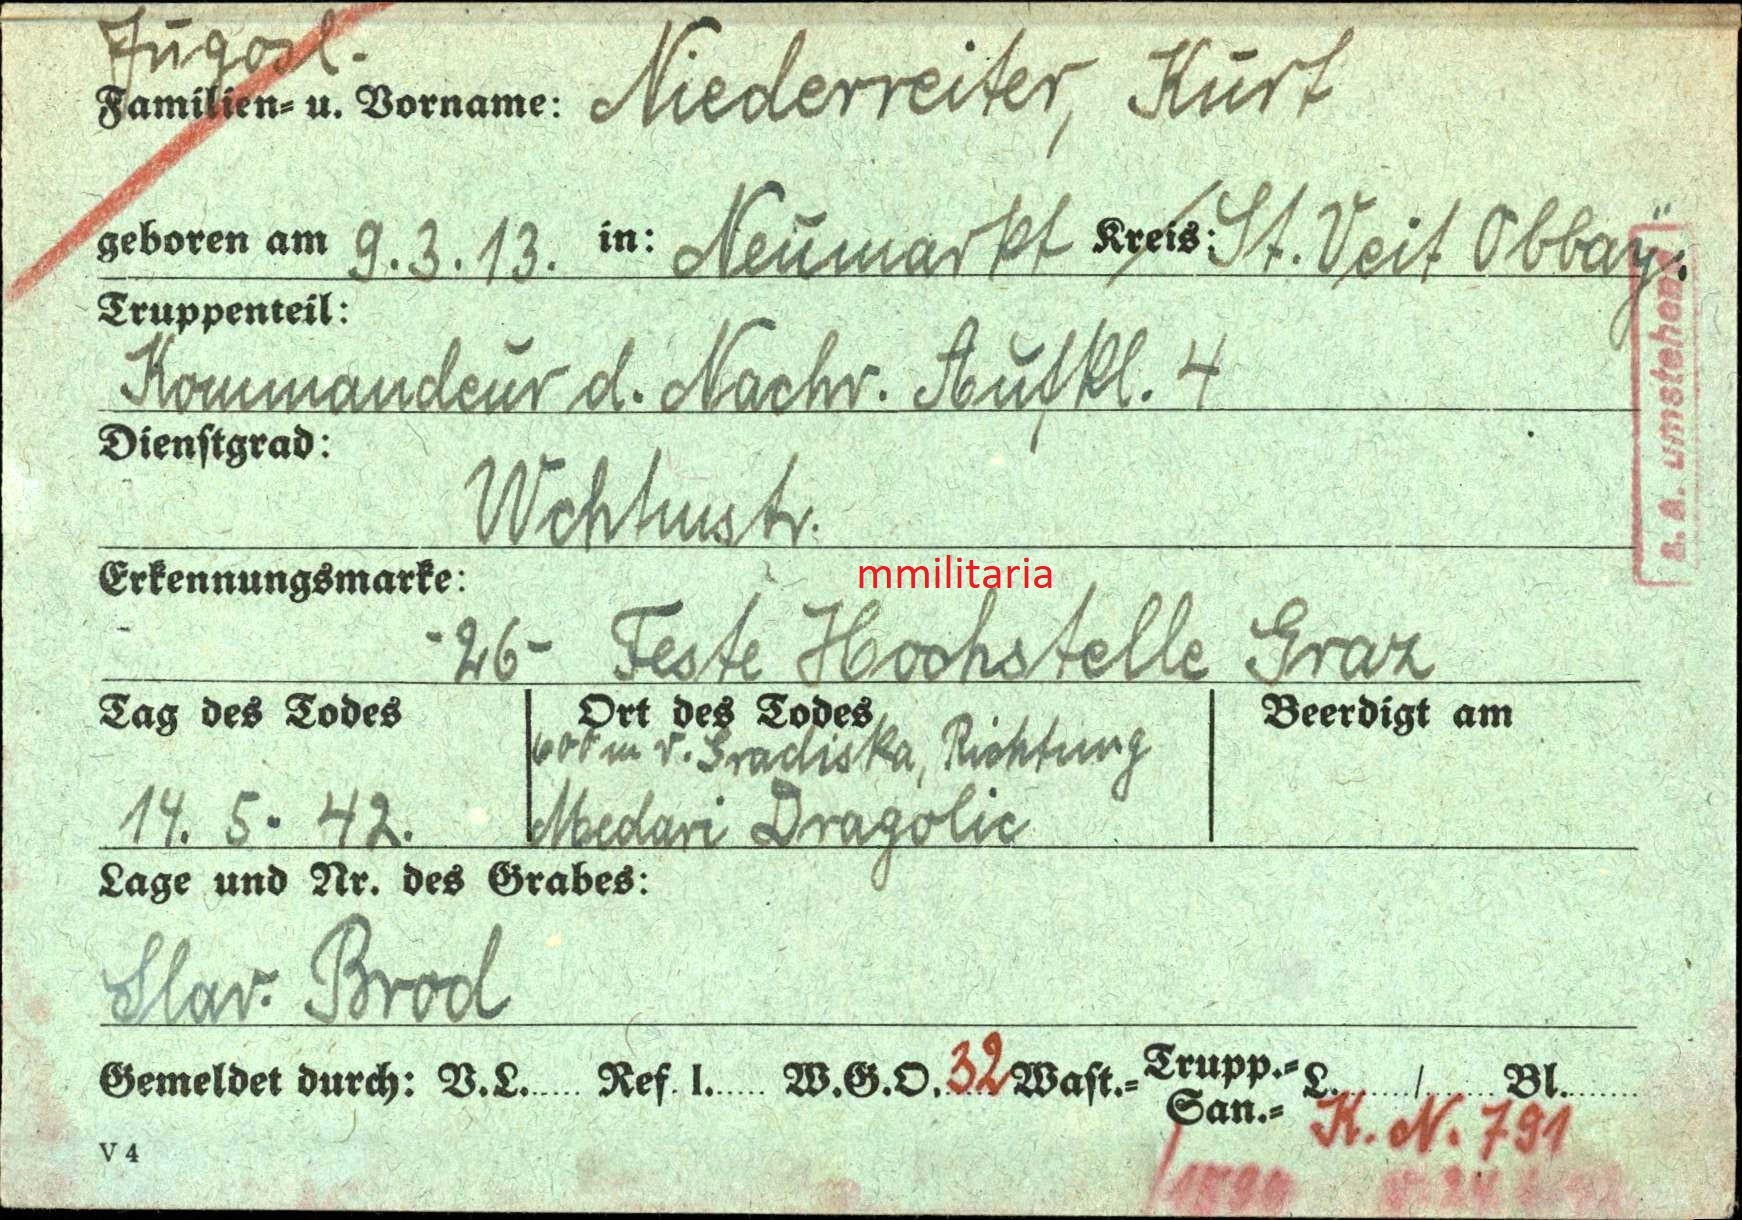 Jugosl.
Familien- u. Vorname: Niederreiter, Kurt
geboren am 9.3.13. in: Neumarkt Kreis: St. Veit Obbay.
Truppenteil:
Kommandeur d. Nachr. Aufkl. 4
Dienstgrad:
Wchtmstr.
Erkennungsmarke:
-26- Feste Horchstelle Graz
mmilitaria
Tag des Todes Ort des Todes Beerdigt am
600 m v. Gradiska, Richtung
14. 5. 42. Medari Dragolic
Lage und Nr. des Grabes:
Slav. Brod
Gemeldet durch: V.L...... Ref. I...... W.G.O. 32 Wast.- Trupp.- L......./....... Bl.......
San.-
K. N. 791
V 4
s. a. umstehend